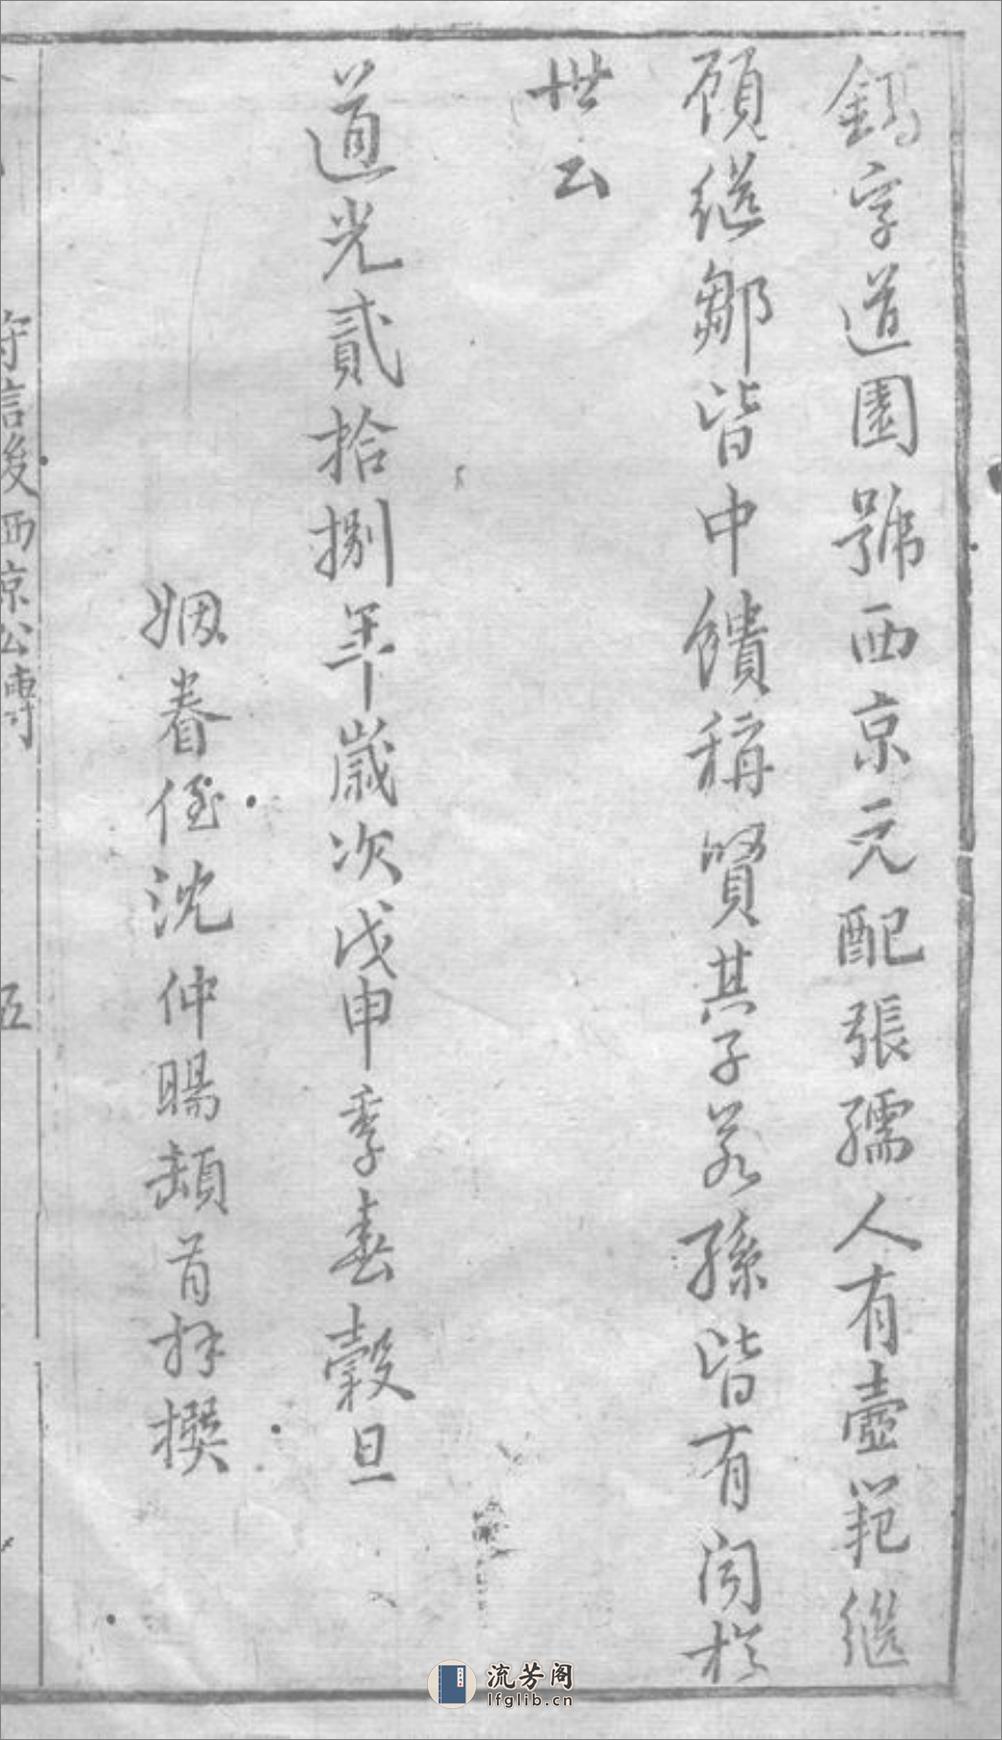 錫字道園號西京元配張孺人有壼範繼
顧繼鄒皆中饋稱賢其子若孫皆有聞於
世云
道光貳拾捌年歲次戊申季春穀旦
姻眷侄沈仲暘頓首拜撰
守信後西京公傳
五
流芳阁
lfglib.cn